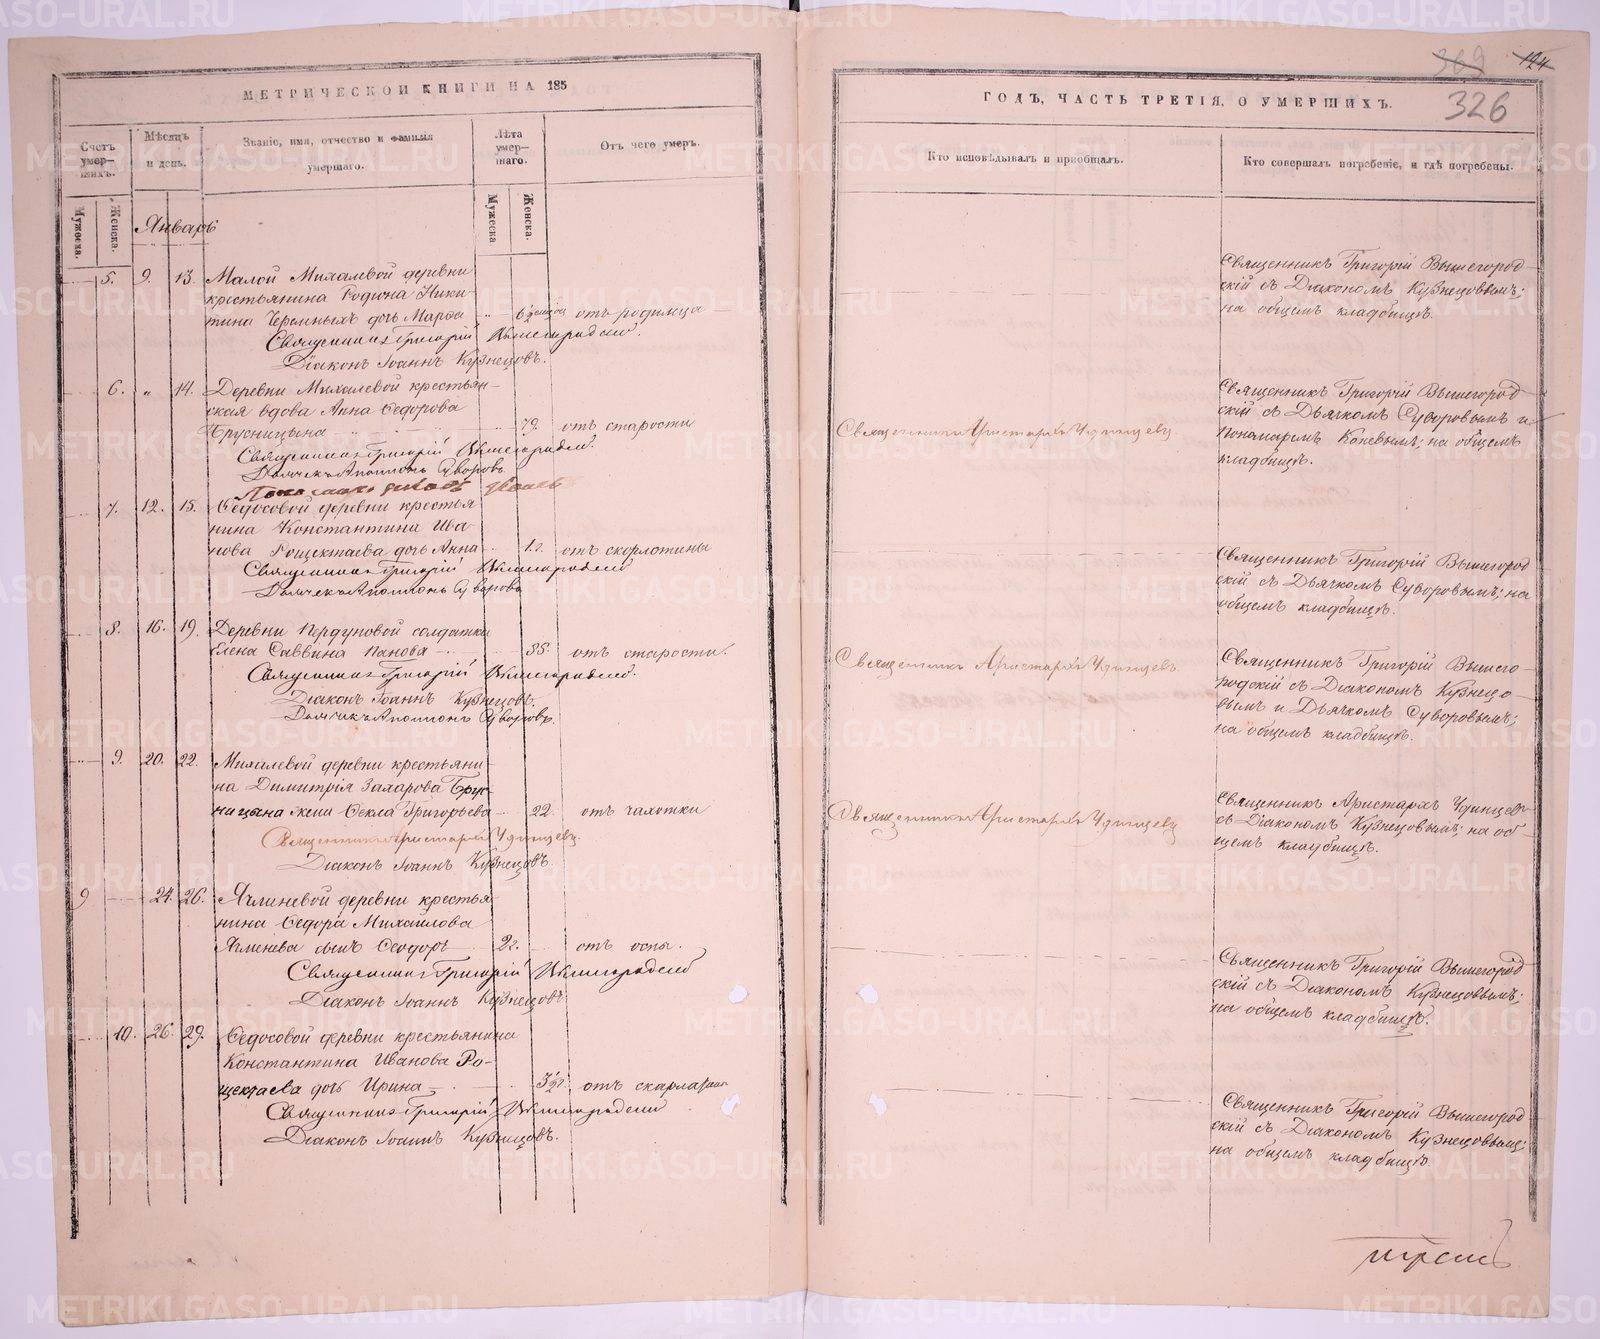 МЕТРИЧЕСКОЙ КНИГИ НА 185
Счетъ умер-шихъ.
Мѣсяцъ и день.
Званіе, имя, отчество и фамилія умершаго.
Лѣта умер-шаго.
Отъ чего умеръ.
Мужеска. Женска.
Мужеска. Женска.
Январь
5. 9. 13. Малой Михалевой деревни
крестьянина Родіона Ники-
тина Черемныхъ дочь Марѳа 6½ отъ родимца
Священникъ Григорій Вышегородскій.
Діаконъ Іоаннъ Кузнецовъ.
6. „ 14. Деревни Михалевой крестьян-
ская вдова Анна Ѳедорова
Брусницына 79. отъ старости
Священникъ Григорій Вышегородскій.
Дьячекъ Аполлонъ Суворовъ
7. 12. 15. Ѳедосовой деревни крестья
нина Константина Ива-
нова Рощектаева дочь Анна 1 г. отъ скорлотины
Священникъ Григорій Вышегородскій
Дьячекъ Аполлонъ Суворовъ
8. 16. 19. Деревни Пердуновой солдатка
Елена Саввина Панова 85. отъ старости.
Священникъ Григорій Вышегородскій.
Діаконъ Іоаннъ Кузнецовъ.
Дьячекъ Аполлонъ Суворовъ.
9. 20. 22. Михалевой деревни крестьяни-
на Димитрія Захарова Брус-
ницына жена Ѳекла Григорьева 22. отъ чахотки
Священникъ Аристархъ Удинцевъ.
Діаконъ Іоаннъ Кузнецовъ
9 24. 26. Ячменевой деревни крестья
нина Ѳедора Михайлова
Ячменева сынъ Ѳеодоръ 2 г. отъ оспы.
Священникъ Григорій Вышегородскій
Діаконъ Іоаннъ Кузнецовъ
10. 26. 29. Ѳедосовой деревни крестьянина
Константина Иванова Ро-
щектаева дочь Ирина 3½ г. отъ скарлатины
Священникъ Григорій Вышегородскій
Діаконъ Іоаннъ Кузнецовъ.
309 124
326
ГОДЪ, ЧАСТЬ ТРЕТІЯ, О УМЕРШИХЪ.
Кто исповѣдывалъ и пріобщалъ.
Кто совершалъ погребеніе, и гдѣ погребены.
Священникъ Григорій Вышегород-
скій съ Діакономъ Кузнецовымъ;
на общемъ кладбищѣ.
Священникъ Аристархъ Удинцевъ.
Священникъ Григорій Вышегород
скій съ Дьячкомъ Суворовымъ и
Пономаремъ Коневымъ; на общемъ
кладбищѣ.
Священникъ Григорій Вышегород
скій съ Дьячкомъ Суворовымъ; на
общемъ кладбищѣ.
Священникъ Аристархъ Удинцевъ.
Священникъ Григорій Вышего-
родскій съ Діакономъ Кузнецо-
вымъ и Дьячкомъ Суворовымъ;
на общемъ кладбищѣ.
Священникъ Аристархъ Удинцевъ
Священникъ Аристархъ Удинцевъ
съ Діакономъ Кузнецовымъ; на об-
щемъ кладбищѣ.
Священникъ Григорій Вышегород
скій съ Діакономъ Кузнецовымъ;
на общемъ кладбищѣ.
Священникъ Григорій Вышегород
скій съ Діакономъ Кузнецовымъ;
на общемъ кладбищѣ.
METRIKI.GASO-URAL.RU